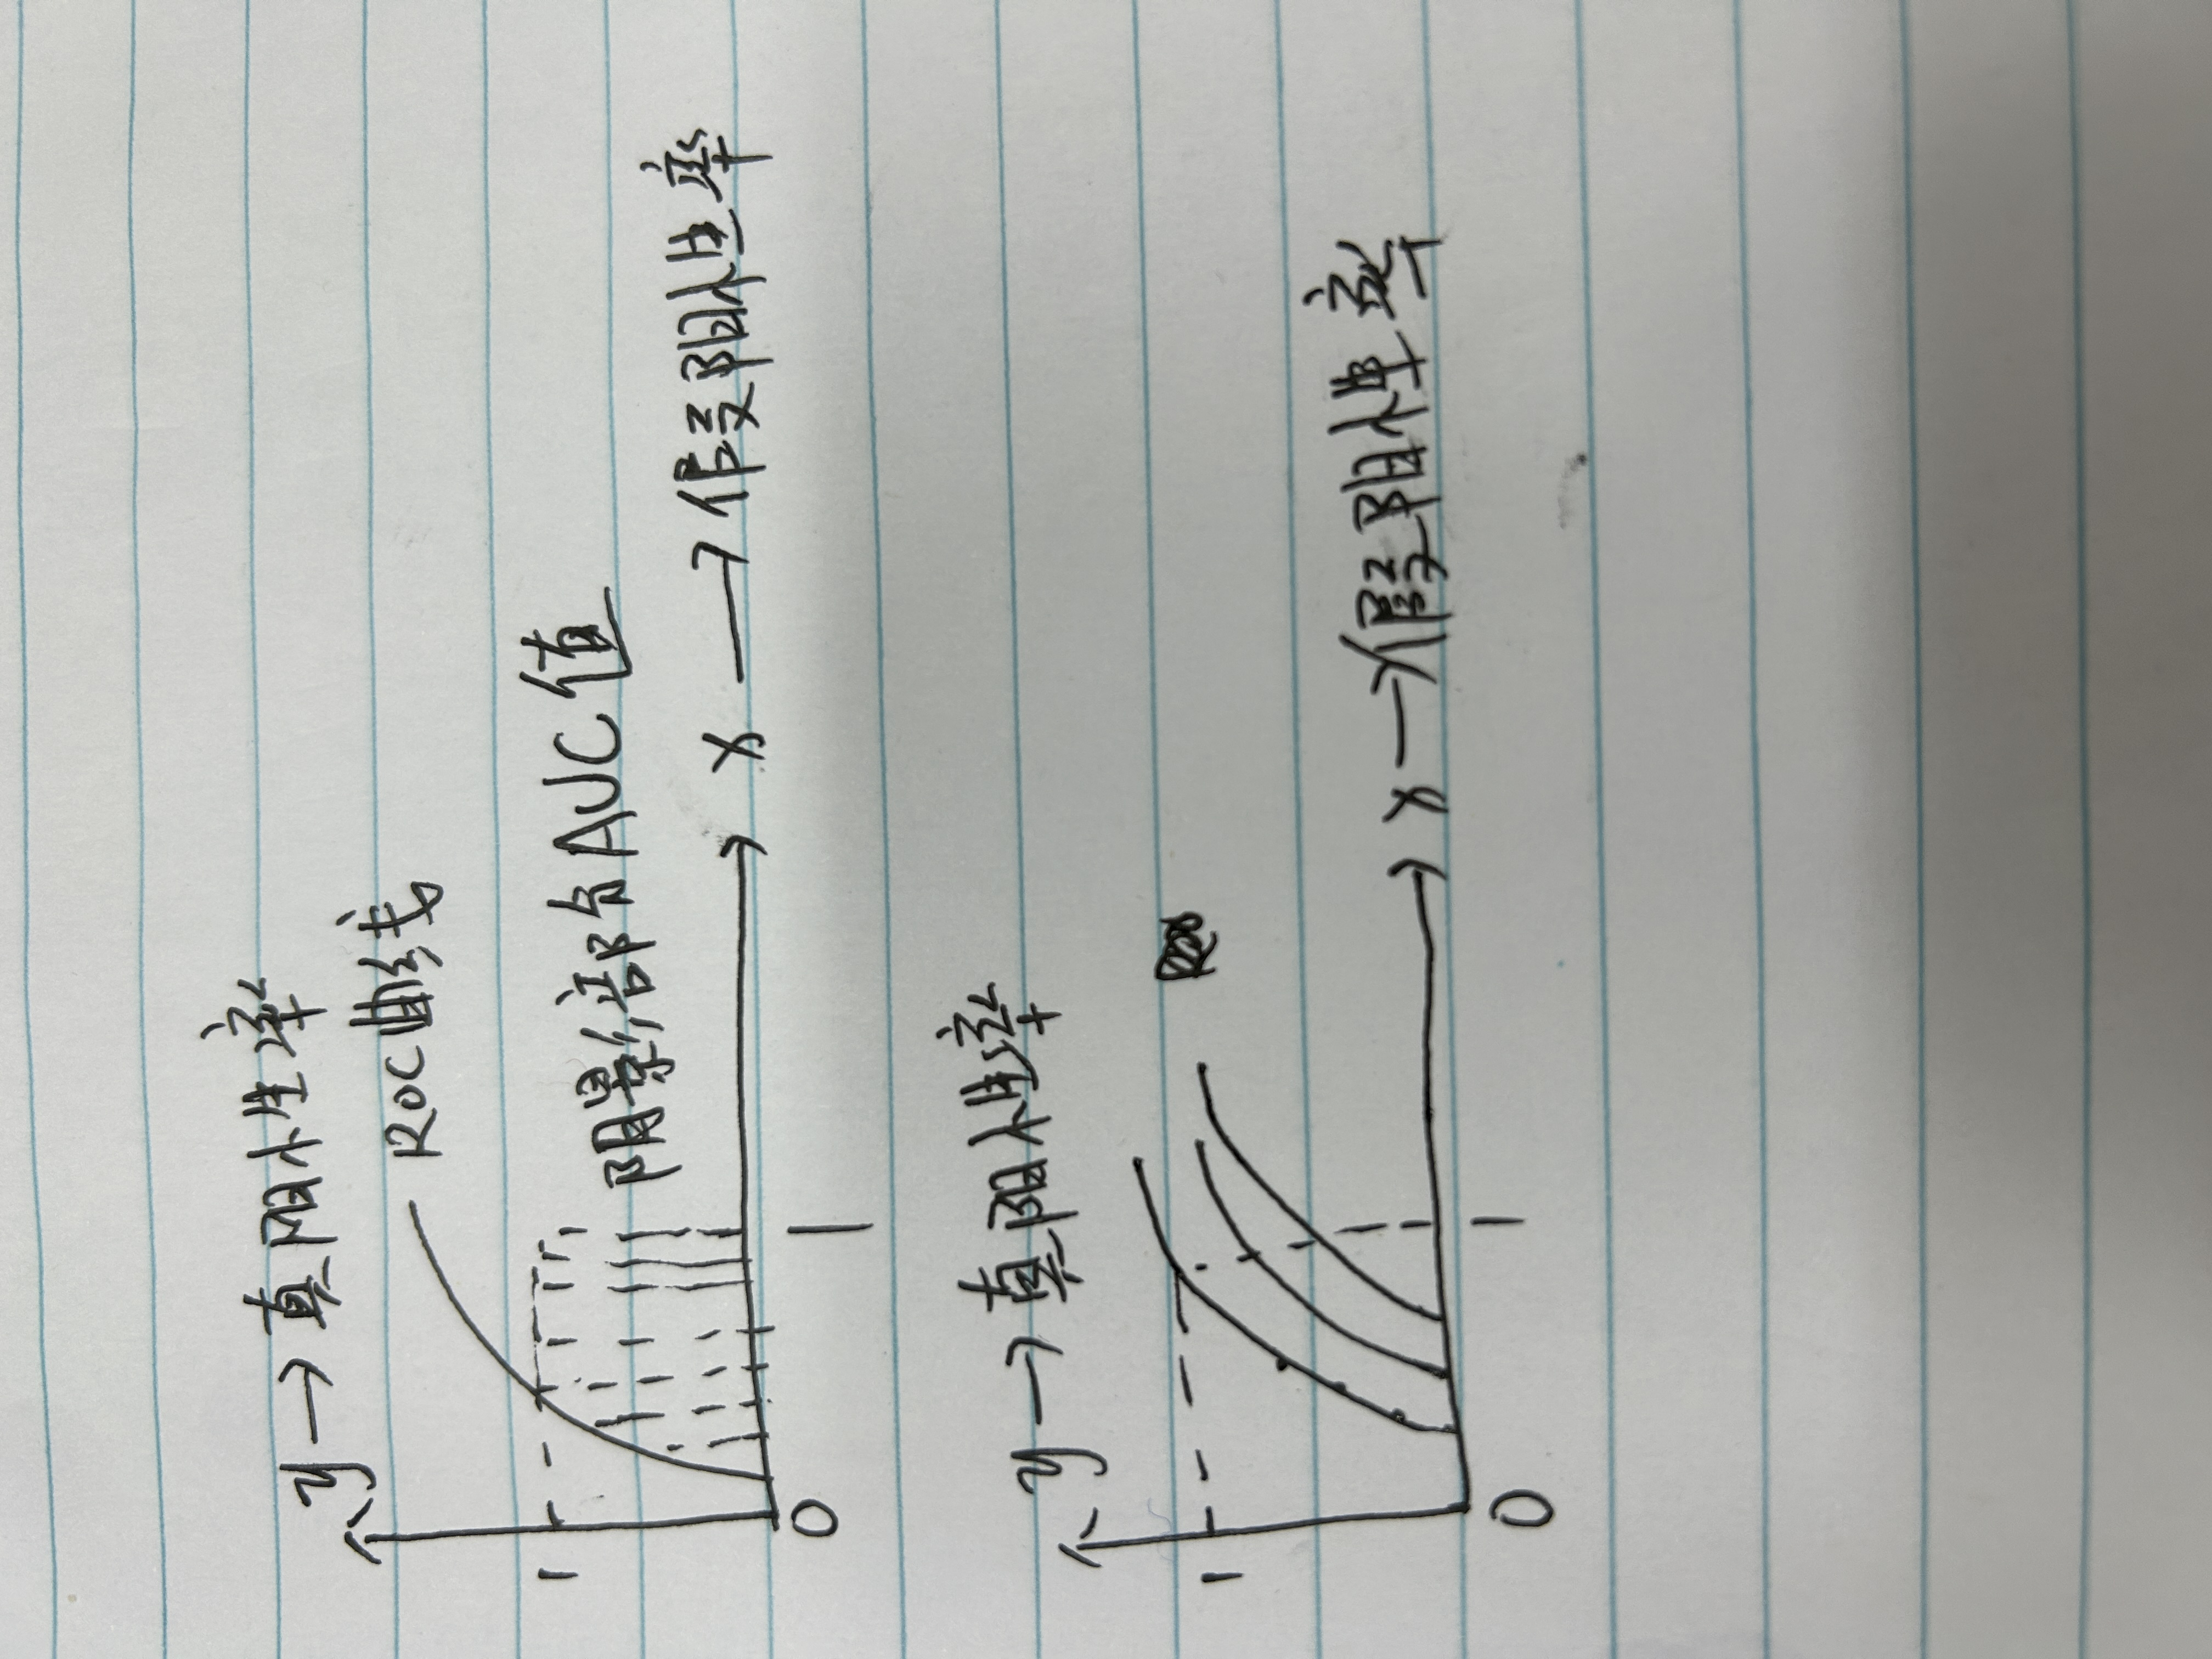 y→真阳性率
ROC曲线
1
阴影部分AUC值
x→假阳性率
0
1
y→真阳性率
1
x→假阳性率
0
1